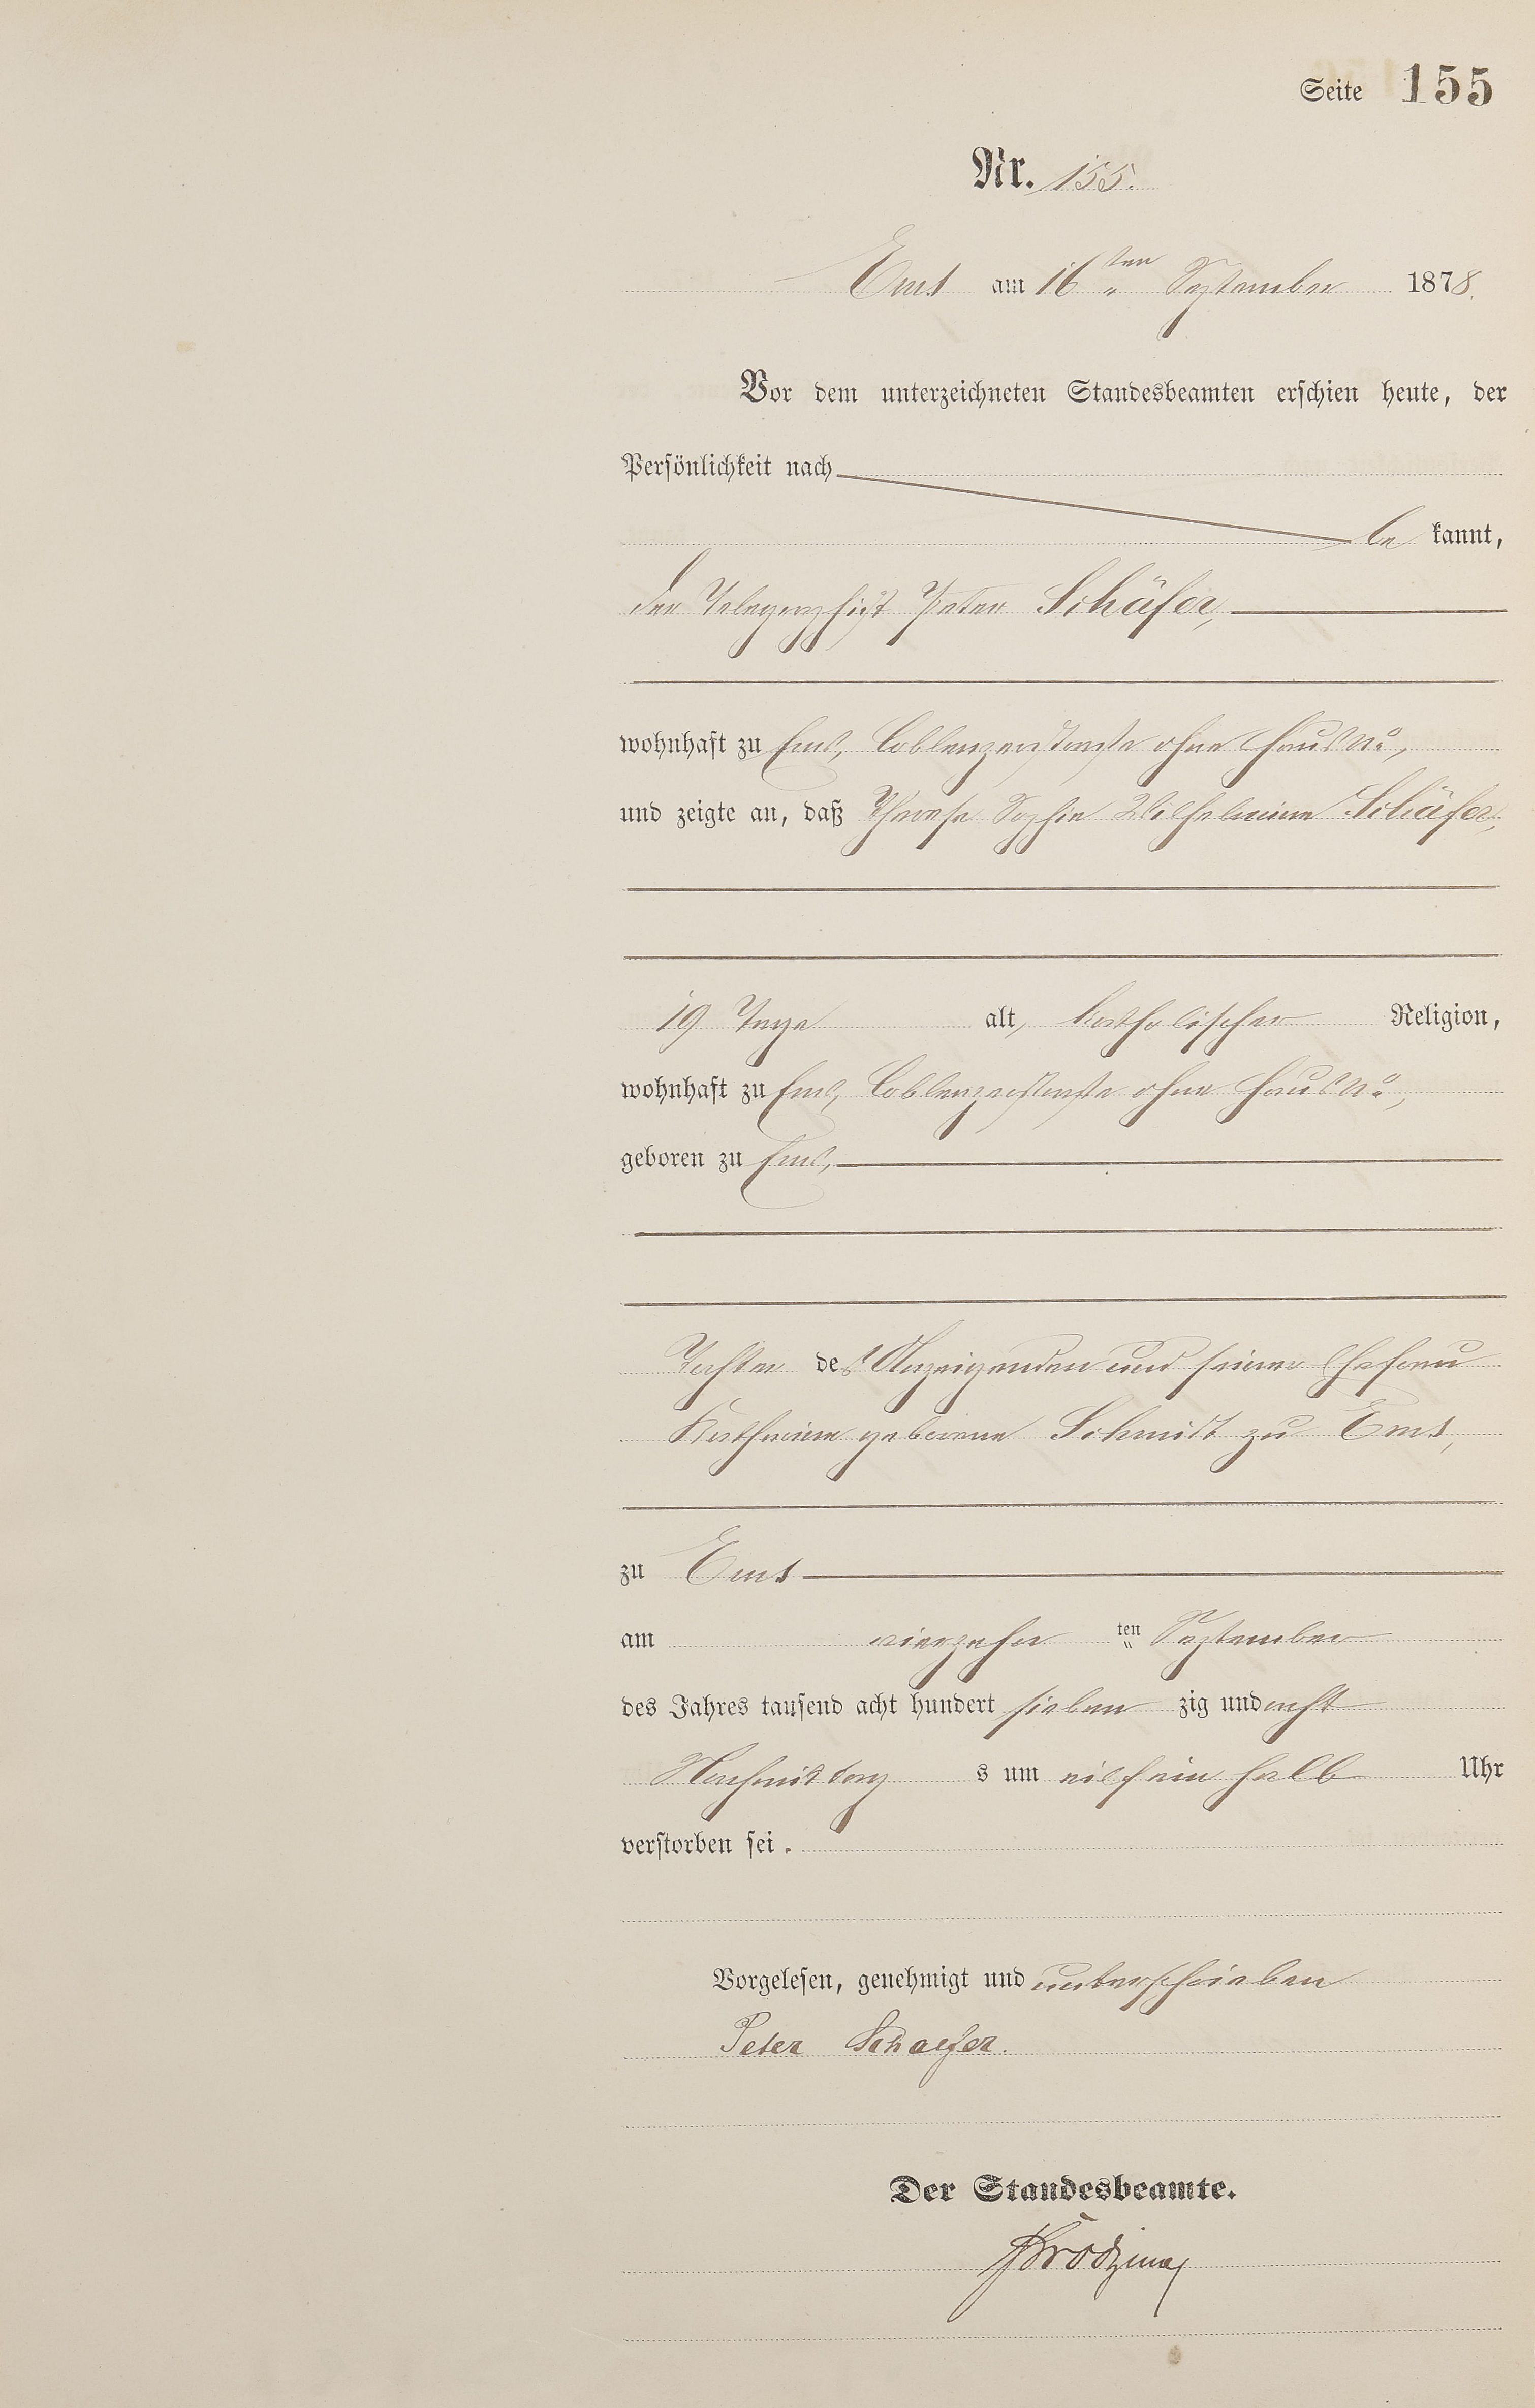 Seite 155
Nr. 155.
Ems am 16ten September 1878.
Vor dem unterzeichneten Standesbeamten erschien heute, der
Persönlichkeit nach
be kannt,
der Telegraphist Peter Schäfer,
wohnhaft zu Ems, Coblenzerstraße ohne Haus No,
und zeigte an, daß Therese Sophie Wilhelmine Schäfer,
19 Tage alt, katholischer Religion,
wohnhaft zu Ems, Coblenzerstraße ohne Haus No,
geboren zu Ems,
Tochter des Anzeigenden und seiner Ehefrau
Katharine geborene Schmidt zu Ems,
zu Ems
am vierzehn ten September
des Jahres tausend acht hundert sieben zig und acht
Nachmittag s um eilf ein halb Uhr
verstorben sei.
Vorgelesen, genehmigt und unterschrieben
Peter Schaefer.
Der Standesbeamte.